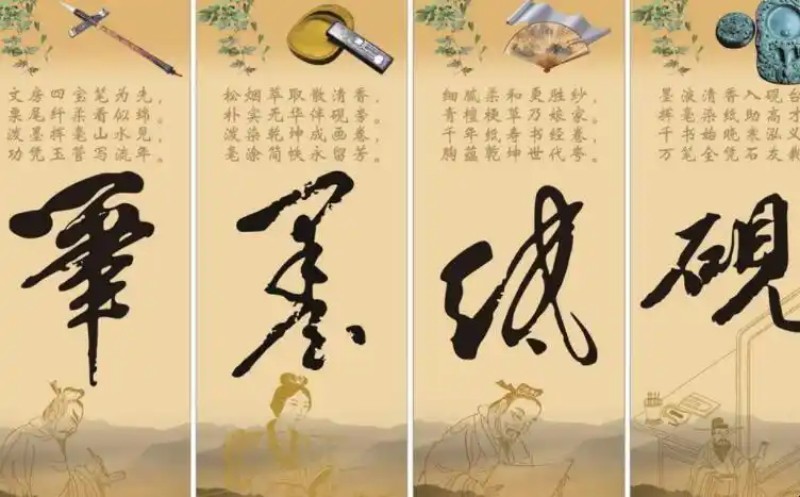 文房四宝笔为先，
栗尾纤柔看似绵。
泼墨挥毫山水见，
功凭玉管写流年。
筆
松烟萃取散清香，
朴实无华伴砚旁。
泼染乾坤成画卷，
毫涂简帙永留芳。
墨
细腻柔和更胜纱，
青檀梗草乃娘家。
千年纸寿书经卷，
胸蕴乾坤世代夸。
纸
墨液清香入砚台
挥 染纸助高才
千 书 晚
万笔全凭石友
砚